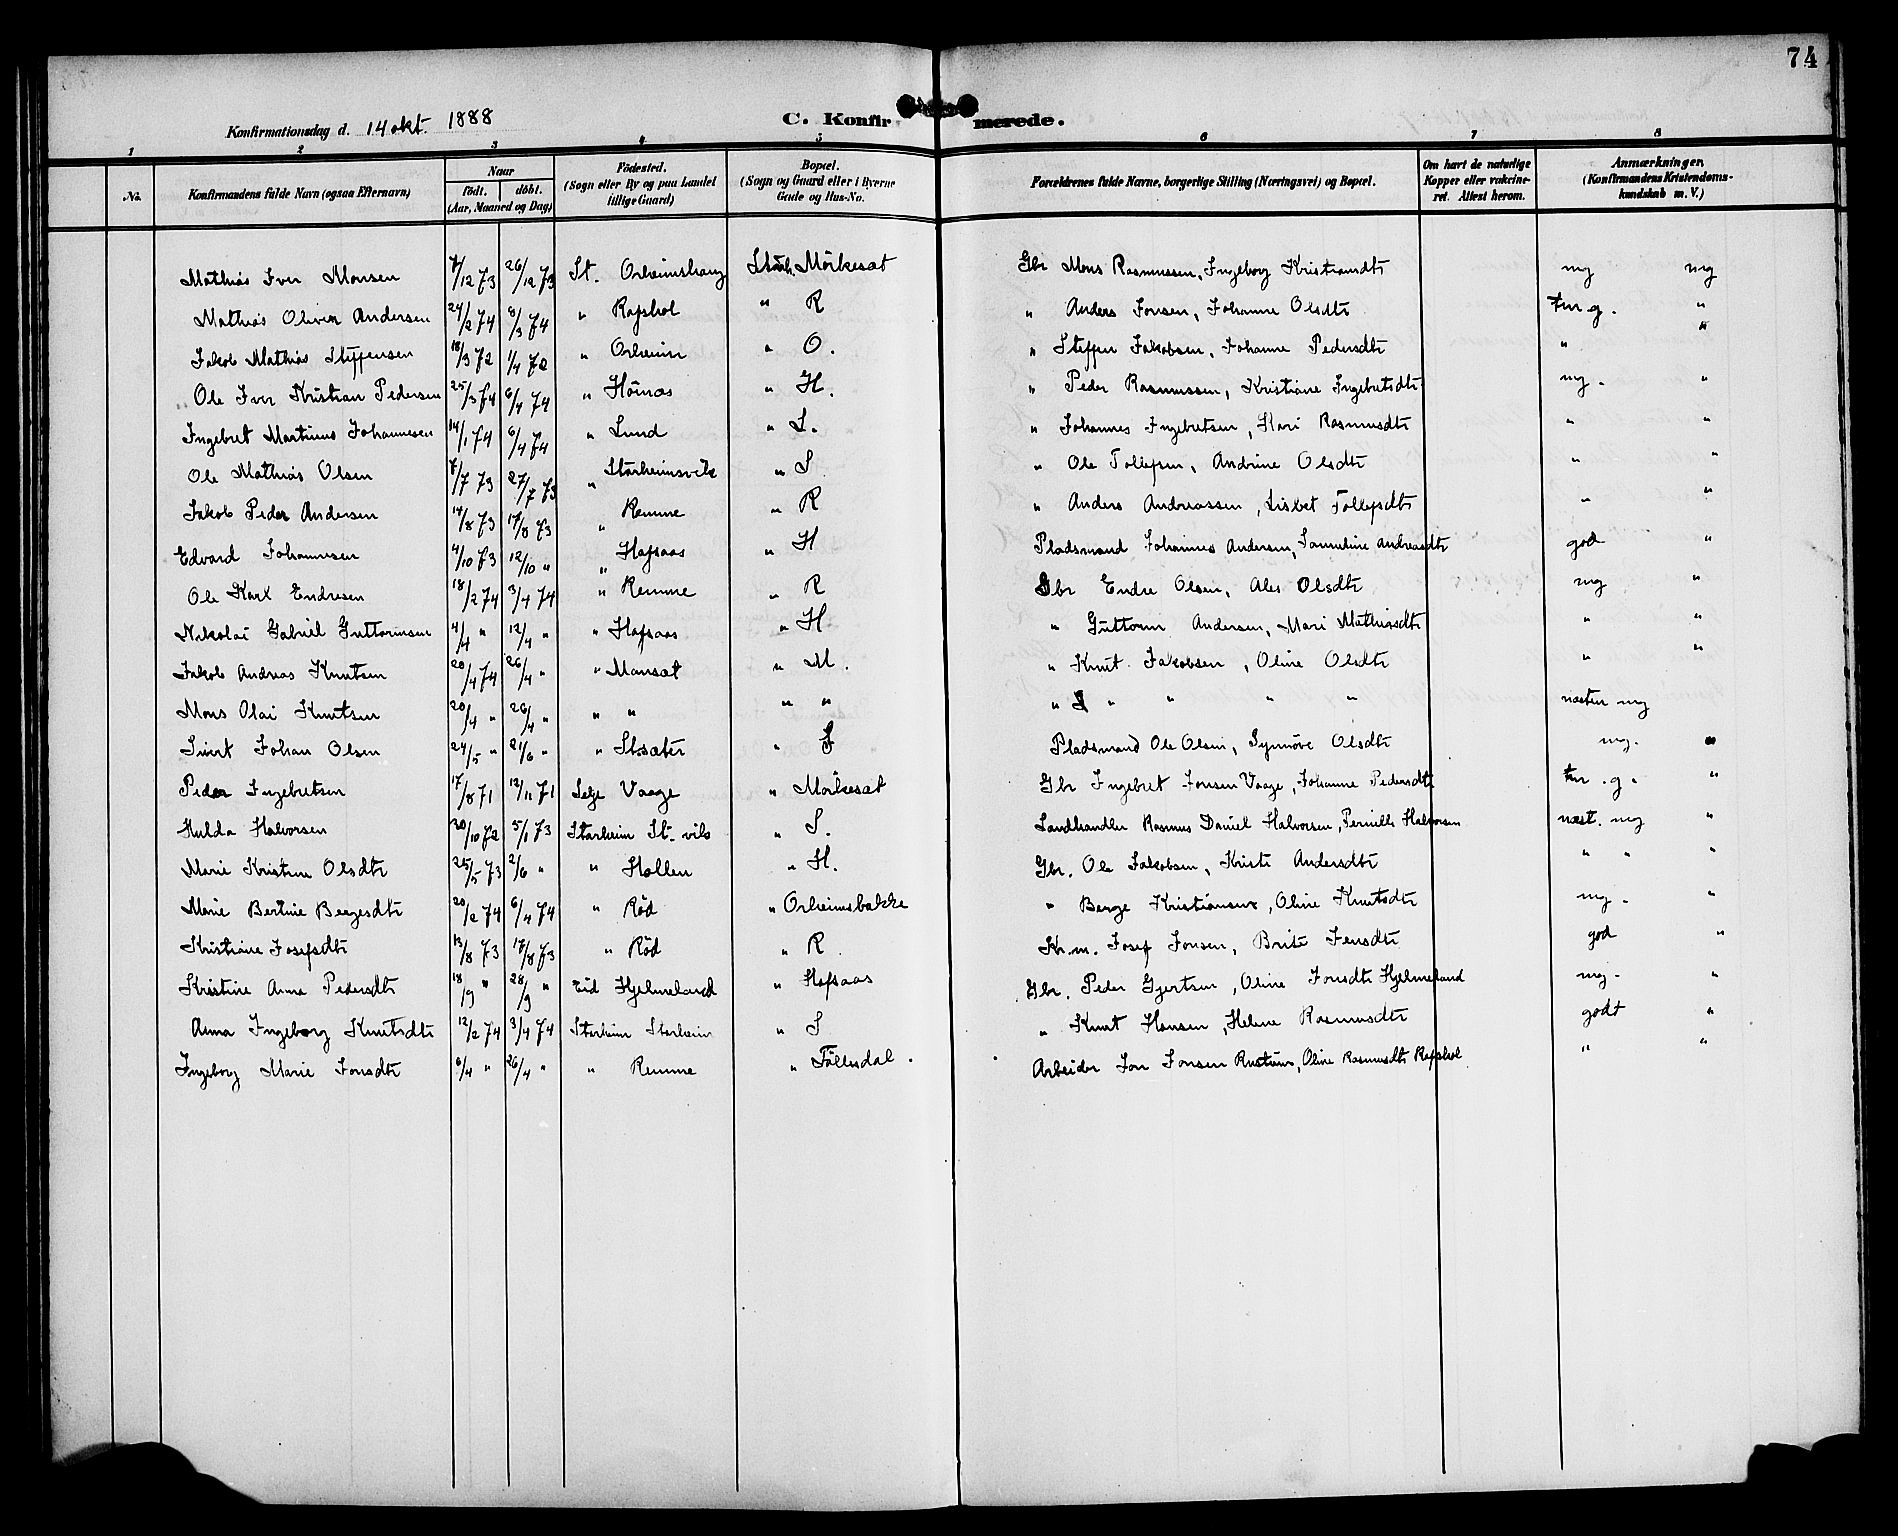 74
Konfirmationsdag d. 14 okt. 1888 C. Konfirmerede.
1 2 3 4 5 6 7 8
No. Konfirmandens fulde Navn (ogsaa Efternavn) Naar födt. döbt. (Aar, Maaned og Dag) Födested. (Sogn eller By og paa Landet tillige Gaard) Bopæl. (Sogn og Gaard eller i Byerne Gade og Hus-No. Forældrenes fulde Navne, borgerlige Stilling (Næringsvei) og Bopæl. Om havt de naturlige Kopper eller vakcineret. Attest herom. Anmærkninger. (Konfirmandens Kristendomskundskab m. V.)
Mathias Iver Monsen 7/12 73 26/12 73 St. Orheimshaug Mörkesæt Gbr Mons Rasmussen, Ingeborg Kristiansdtr mg mg
Mathias Oliver Andersen 24/2 74 8/3 74 " Rafshol " R " Anders Jonsen, Johanne Olsdtr tm g. "
Jakob Mathias Steffensen 18/3 72 1/4 72 " Orheim " O. " Steffen Jakobsen, Johanne Pedersdtr " "
Ole Iver Kristian Pedersen 25/3 74 6/4 74 " Hönes " H. " Peder Rasmussen, Kristiane Ingebretsdtr mg. "
Ingebret Martinus Johannesen 14/1 74 6/4 74 " Lund " L. " Johannes Ingebretsen, Kari Rasmusdtr " "
Ole Mathias Olsen 7/7 73 27/7 73 " Starheimsvik " S. " Ole Tollefsen, Andrine Olsdtr " "
Jakob Peder Andersen 14/8 73 17/8 73 " Remme " R " Anders Andreassen, Lisbet Tollefsdtr " "
Edvard Johannesen 4/10 73 12/10 " " Hafsaas " H Pladsmand Johannes Andersen, Samueline Andreasdtr god "
Ole Karl Endresen 18/2 74 3/4 74 " Remme " R Gbr Endre Olsen, Ales Olsdtr mg "
Nikolai Gabriel Guttormsen 4/4 " 12/4 " " Hafsaas " H " Guttorm Andersen, Mari Mathiasdtr " "
Jakob Andreas Knutsen 20/4 74 26/4 " " Mansæt " M. " Knut Jakobsen, Oline Olsdtr " "
Mons Olai Knutsen 20/4 " 26/4 " " " " " " " " " næsten mg
Sivert Johan Olsen 24/5 " 21/6 " " Stsæter " S Pladsmand Ole Olsen, Synnöve Olsdtr mg. "
Peder Ingebretsen 17/8 71 12/11 71 Selje Vaage " Mörkesæt Gbr Ingebret Jonsen Vaage, Johanne Pedersdtr tm. g. "
Hulda Halvorsen 20/10 72 5/1 73 Starheim St. vik " S. Landhandler Rasmus Daniel Halvorsen, Pernille Halvorsen næst. mg "
Marie Kristine Olsdtr 25/5 73 2/6 " " Hollen " H. Gbr. Ole Jakobsen, Kristi Andersdtr " " "
Marie Bertine Bergesdtr 20/2 74 6/4 74 " Röd " Orheimsbakke " Berge Kristiansen, Oline Knutsdtr mg. "
Kristiane Josefsdtr 13/8 73 17/8 73 " Röd " R. Kr.m. Josef Jonsen, Brite Jensdtr god "
Kristine Anna Pedersdtr 18/9 " 28/9 " Eid Hjelmeland " Hafsaas Gbr. Peder Gjertsen, Oline Jonsdtr Hjelmeland mg. "
Anna Ingeborg Knutsdtr 12/2 74 3/4 74 Starheim Starheim " S " Knut Hansen, Helene Rasmusdtr godt "
Ingeborg Marie Jonsdtr 6/4 " 26/4 " " Remme " Föllesdal. Arbeider Jon Jonsen, Oline Rasmusdtr Rafshol " "